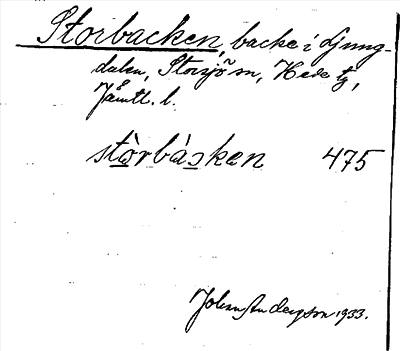 Storbacken, backe i Ljung-
dalen, Storsjö sn, Hede tg,
Jämtl. l.
stòrbàcken 475
Johan Andersson 1933.